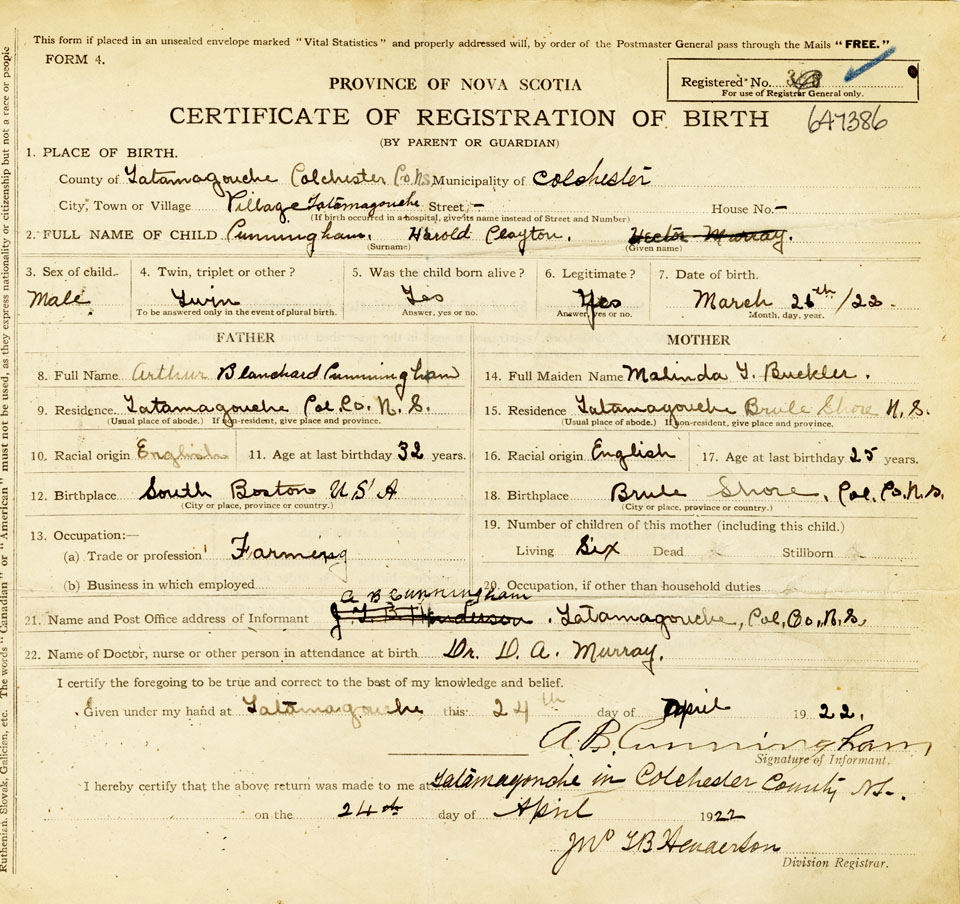 This form if placed in an unsealed envelope marked "Vital Statistics" and properly addressed will, by order of the Postmaster General pass through the Mails "FREE."
FORM 4.
Registered No.
For use of Registrar General only.
PROVINCE OF NOVA SCOTIA
CERTIFICATE OF REGISTRATION OF BIRTH 647386
(BY PARENT OR GUARDIAN)
1. PLACE OF BIRTH.
County of Tatamagouche Colchester Co. N.S. Municipality of Colchester
City, Town or Village Village Tatamagouche Street, – House No. –
(If birth occurred in a hospital, give its name instead of Street and Number)
2. FULL NAME OF CHILD Cunningham, Harold Clayton. Hector Murray.
(Surname) (Given name)
3. Sex of child. 4. Twin, triplet or other? 5. Was the child born alive? 6. Legitimate? 7. Date of birth.
Male Twin Yes Yes March 26th /22.
To be answered only in the event of plural birth. Answer, yes or no. Answer, yes or no. Month, day, year.
FATHER MOTHER
8. Full Name Arthur Blanchard Cunningham 14. Full Maiden Name Malinda Y. Buckler.
9. Residence Tatamagouche Col. Co. N. S. 15. Residence Tatamagouche Brule Shore N.S.
(Usual place of abode.) If non-resident, give place and province. (Usual place of abode.) If non-resident, give place and province.
10. Racial origin English 11. Age at last birthday 32 years. 16. Racial origin English 17. Age at last birthday 25 years.
12. Birthplace South Boston U S A 18. Birthplace Brule Shore, Col. Co. N.S.
(City or place, province or country.) (City or place, province or country.)
13. Occupation:— 19. Number of children of this mother (including this child.)
(a) Trade or profession Farming Living Six Dead Stillborn
(b) Business in which employed 20. Occupation, if other than household duties
A B Cunningham
21. Name and Post Office address of Informant Henderson. Tatamagouche, Col. Co., N.S.
22. Name of Doctor, nurse or other person in attendance at birth Dr. D. A. Murray.
I certify the foregoing to be true and correct to the best of my knowledge and belief.
Given under my hand at Tatamagouche this 24th day of April 1922.
A. B. Cunningham
Signature of Informant.
I hereby certify that the above return was made to me at Tatamagouche in Colchester County N.S.
on the 24th day of April 1922
Jno T B Henderson
Division Registrar.
Ruthenian, Slovak, Galician, etc. The words "Canadian" or "American" must not be used, as they express nationality or citizenship but not a race or people